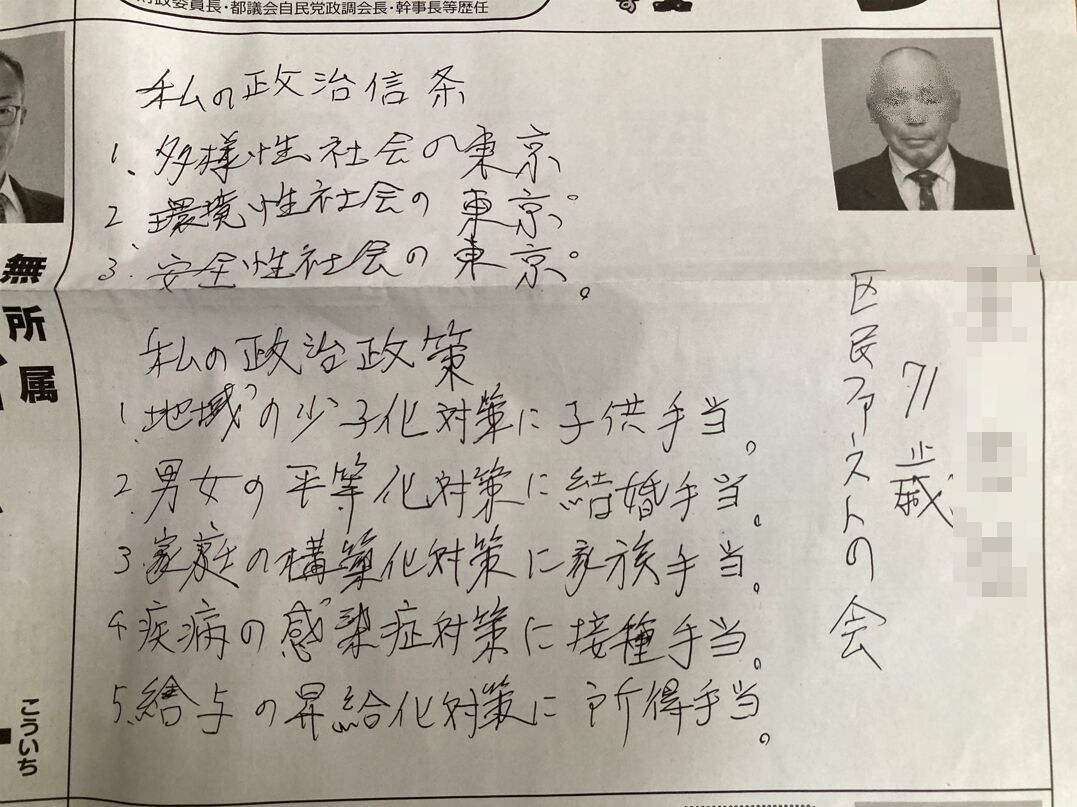 財政委員長・都議会自民党政調会長・幹事長等歴任
私の政治信条
1. 多様性社会の東京。
2. 環境性社会の東京。
3. 安全性社会の東京。
私の政治政策
1. 地域の少子化対策に子供手当。
2. 男女の平等化対策に結婚手当。
3. 家庭の構築化対策に家族手当。
4. 疾病の感染症対策に接種手当。
5. 給与の昇給化対策に所得手当。
71歳
区民ファーストの会
無所属
こういち